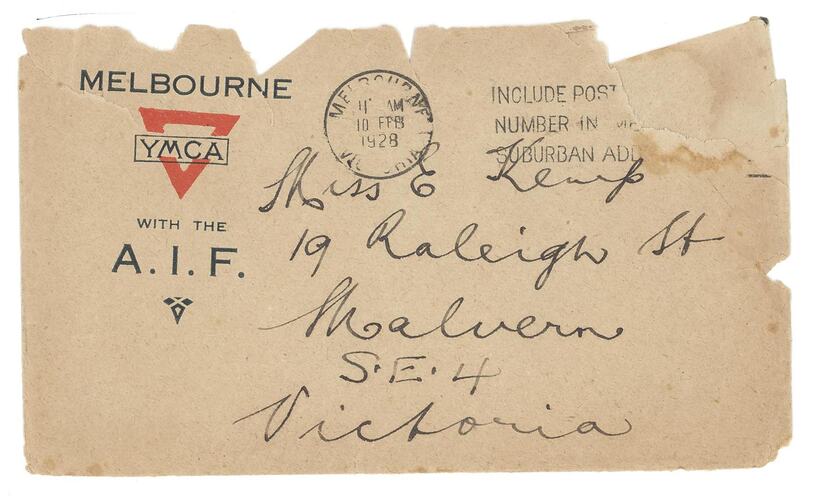 MELBOURNE
YMCA
WITH THE
A.I.F.
MELBOURNE
11 AM
10 FEB
1928
VICTORIA
INCLUDE POST
NUMBER IN
SUBURBAN ADD
Miss E Kemp
19 Raleigh St
Malvern
S.E.4
Victoria